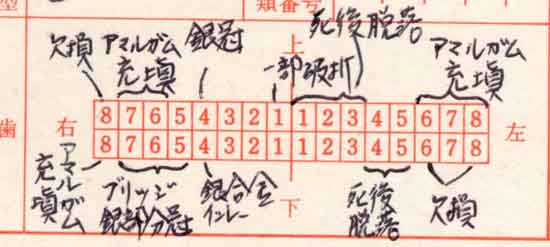 類番号
死後脱落
欠損 アマルガム充填 銀冠 上 一部破折 アマルガム充填
8 7 6 5 4 3 2 1 1 2 3 4 5 6 7 8
歯 右 左
8 7 6 5 4 3 2 1 1 2 3 4 5 6 7 8
アマルガム充填 ブリッジ銀部分冠 銀合金インレー 下 死後脱落 欠損